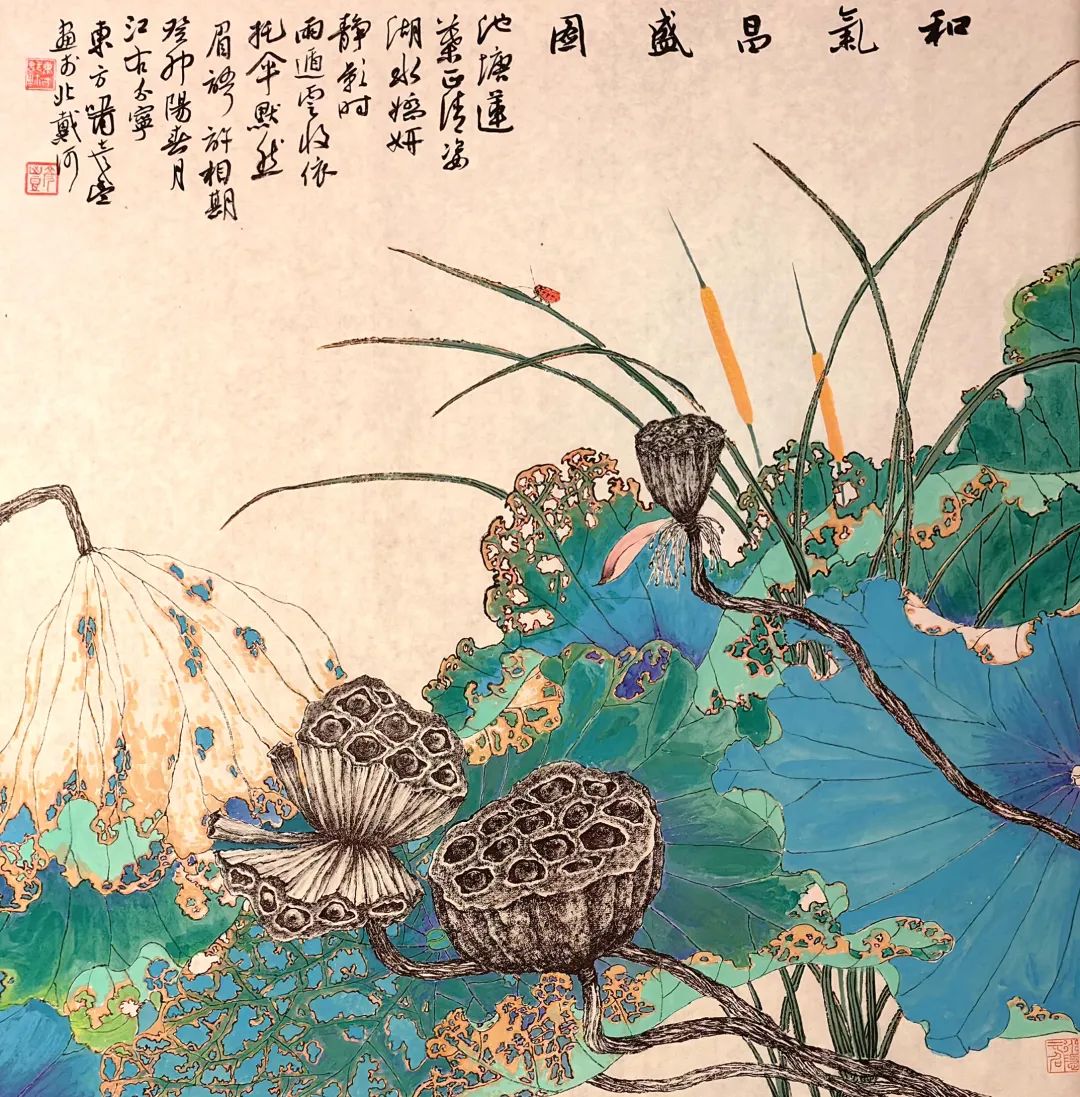 和氣昌盛圖
池塘蓮
葉正清姿
湖水嬌妍
靜影时
雨遁雲收依
托伞默然
眉語許相期
癸卯陽春月
江右分寧
東方嘯
畫於北戴河